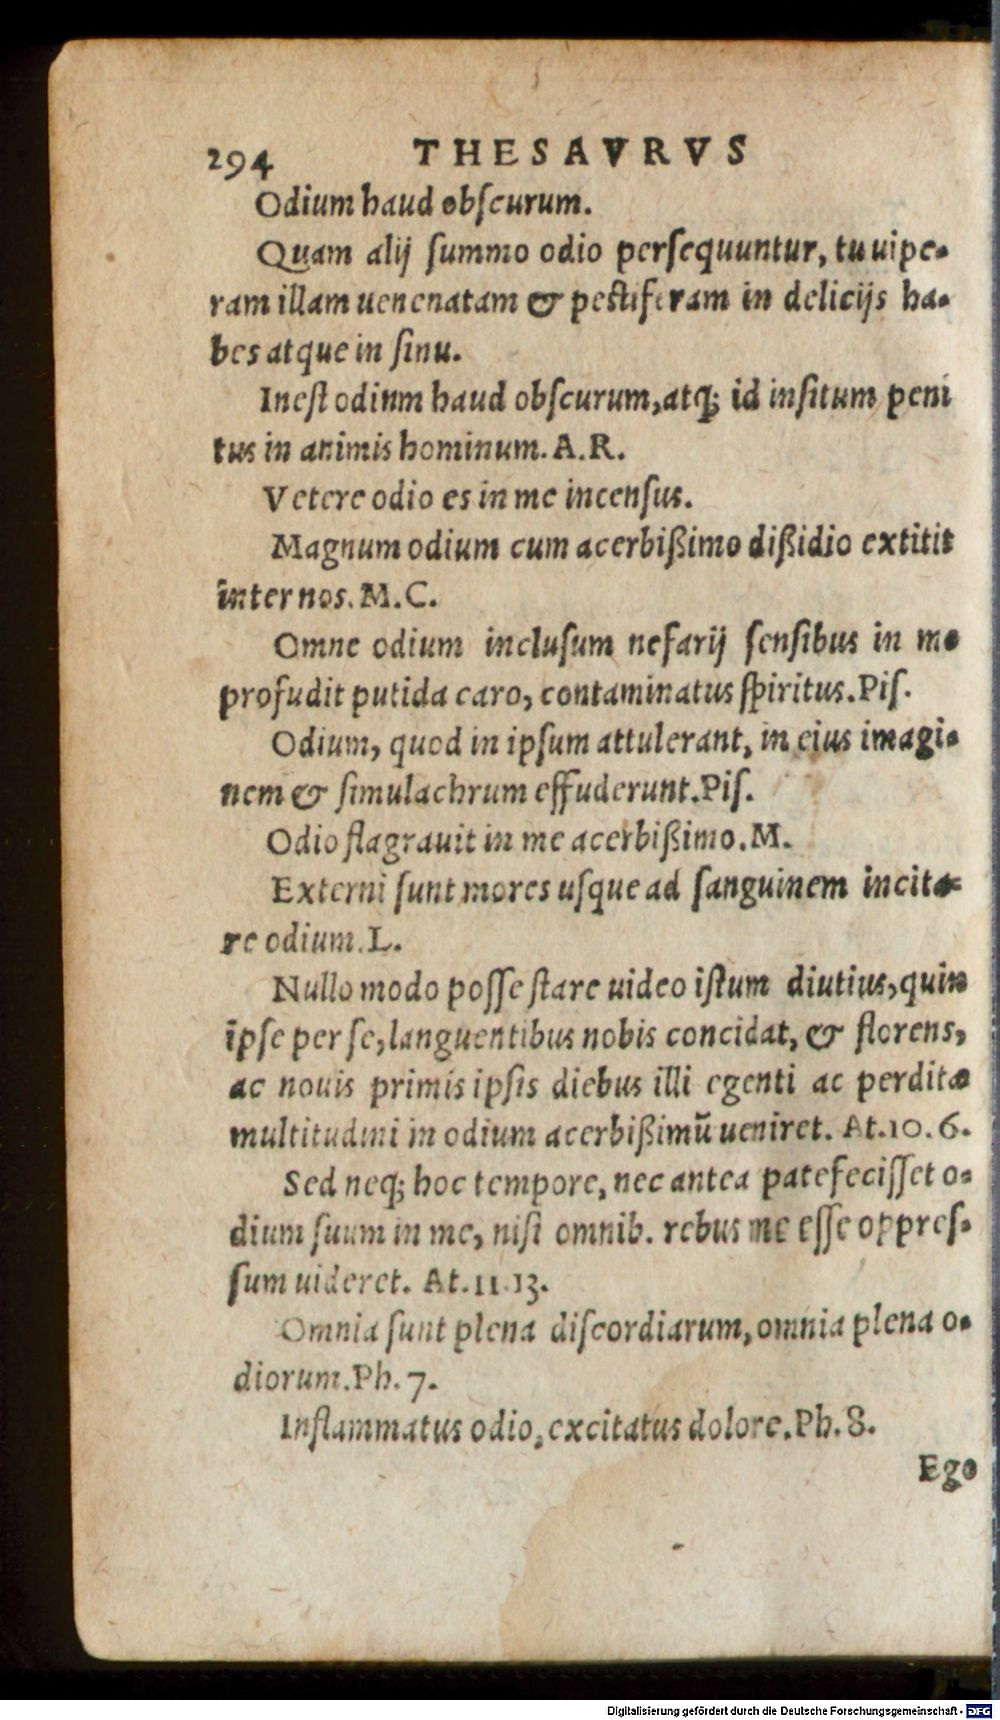 294 THESAVRVS
Odium haud obſcurum.
Quam alij ſummo odio perſequuntur, tu uipe-
ram illam uenenatam & peſtiferam in delicijs ha-
bes atque in ſinu.
Ineſt odium haud obſcurum, atq; id inſitum peni
tus in animis hominum. A.R.
Vetere odio es in me incenſus.
Magnum odium cum acerbißimo dißidio extitit
inter nos. M.C.
Omne odium incluſum nefarij ſenſibus in me
profudit putida caro, contaminatus ſpiritus. Piſ.
Odium, quod in ipſum attulerant, in eius imagi-
nem & ſimulachrum effuderunt. Piſ.
Odio flagrauit in me acerbißimo. M.
Externi ſunt mores uſque ad ſanguinem incita-
re odium. L.
Nullo modo poſſe ſtare uideo iſtum diutius, quin
ipſe per ſe, languentibus nobis concidat, & florens,
ac nouis primis ipſis diebus illi egenti ac perditæ
multitudini in odium acerbißimũ ueniret. At.10.6.
Sed neq; hoc tempore, nec antea patefeciſſet o-
dium ſuum in me, niſi omnib. rebus me eſſe oppreſ-
ſum uideret. At.11.13.
Omnia ſunt plena diſcordiarum, omnia plena o-
diorum. Ph. 7.
Inflammatus odio, excitatus dolore. Ph. 8.
Ego
Digitalisierung gefördert durch die Deutsche Forschungsgemeinschaft - DFG